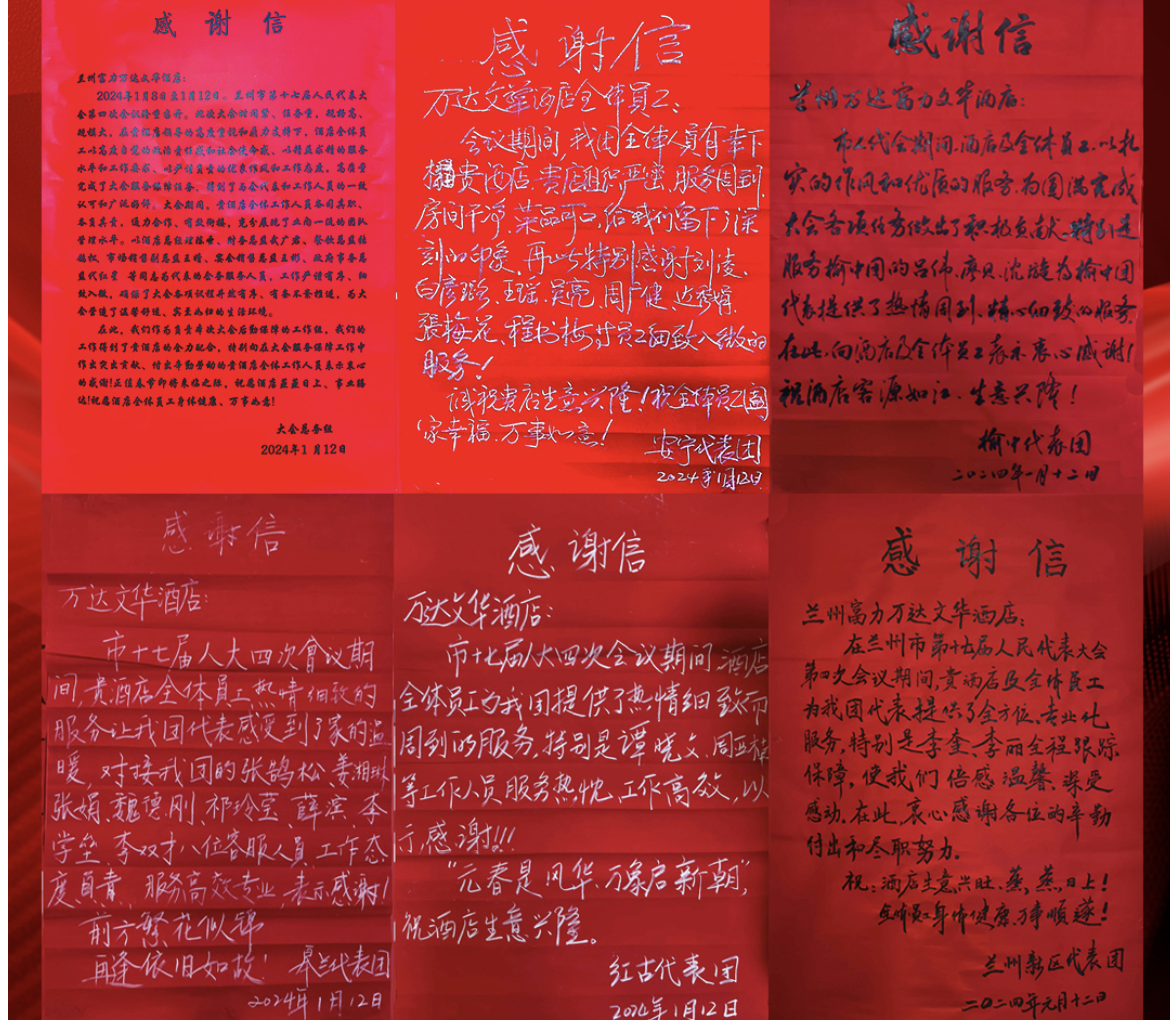 感谢信
兰州富力万达文华酒店:
2024年1月8日至1月12日。兰州市第十七届人民代表大
会第四次会议隆重召开。此次大会时间紧、任务重、规格高、
规模大,在贵酒店领导的高度重视和鼎力支持下,酒店全体员
工以高度自觉的政治责任感和社会使命感、以精益求精的服务
水平和工作要求、以严谨负责的优良作风和工作态度,高质量
完成了大会服务保障任务,得到了与会代表和工作人员的一致
认可和广泛好评。大会期间,贵酒店全体工作人员各司其职、
各负其责,通力合作、有效衔接,充分展现了上下一级的团队
管理水平。以酒店总经理陈
等同志为代表的会务服务人员,工作严谨有序、细
致入微,确保了大会各项议程井然有序、有条不紊推进,为大
会营造了温馨舒适、宾至如归的生活环境。
在此,我们作为负责本次大会后勤保障的工作组,我们的
工作得到了贵酒店的全力配合,特别向在大会服务保障工作中
作出突出贡献、付出辛勤劳动的贵酒店全体工作人员表示衷心
的感谢!正值春节即将来临之际,祝愿酒店蒸蒸日上、事业腾
达!祝愿酒店全体员工身体健康、万事如意!
大会总务组
2024年1月12日
感谢信
万达文華酒店全体員工:
会议期间,我团全体人員有幸下
榻貴酒店.貴店組织严密、服务周到、
房间干净、菜品可口,给我们留下了深
刻的印象、再此特别感谢刘凌、
白彦璐、王瑶、吴亮、周广健、达
張梅花、程书梅等員工细致入微的
服务!
诚祝貴店生意兴隆!祝全体員工闔
家幸福、万事如意!
安宁代表团
2024年1月12日
感谢信
兰州万达富力文华酒店:
市人代会期间,酒店及全体员工.以扎
实的作风和优质的服务.为圆满完成
大会各项任务做出了积极贡献.特别是
服务榆中团的吕伟、廖贝、沈璇为榆中团
代表提供了热情周到、精心细致的服务.
在此.向酒店及全体员工表示衷心感谢!
祝酒店客源如江.生意兴隆!
榆中代表团
二〇二四年一月十二日
感谢信
万达文华酒店:
市十七届人大四次會议期
间,贵酒店全体员工热情细致的
服务让我团代表感受到了家的温
暖,对接我团的张鹄松、姜湘琳
张娟、魏德刚、祁玲莹、薛滨、李
学垒、李双才八位客服人员,工作态
度負责、服务高效专业,表示感谢!
前方繁花似锦
再逢依旧如故! 皋兰代表团
2024年1月12日
感谢信
万达文华酒店:
市十七届人大四次会议期间,酒店
全体员工为我团提供了热情细致而
周到的服务,特别是谭晓文、周亚梅
等工作人员服务热忱、工作高效,以
示感谢!!!
“元春是风华、万象启新朝”,
祝酒店生意兴隆。
红古代表团
2024年1月12日
感谢信
兰州富力万达文华酒店:
在兰州市第十七届人民代表大会
第四次会议期间,贵酒店及全体员工
为我团代表提供了全方位、专业化
服务,特别是李奎、李丽全程跟踪
保障,使我们倍感温馨、深受
感动.在此,衷心感谢各位的辛勤
付出和尽职努力。
祝:酒店生意兴旺、蒸蒸日上!
全体员工身体健康、万事順遂!
兰州新区代表团
二〇二四年元月十二日